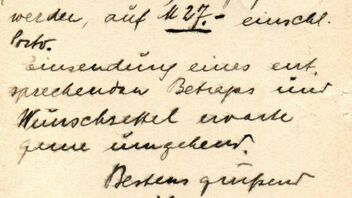 werden, auf M 27.- einschl.
Porto.
Einsendung eines ent-
sprechenden Betrags und
Wunschzettel erwarte
gerne umgehend.
Bestens grüßend